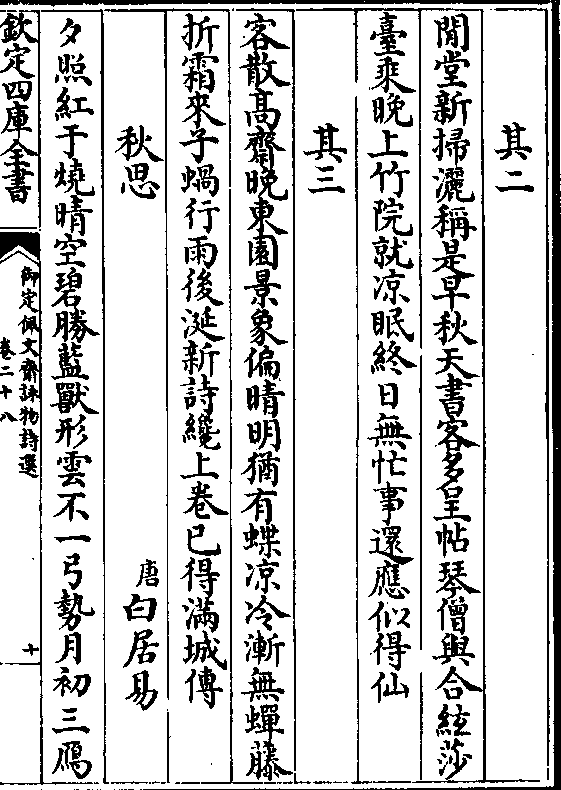 其二
閒堂新掃灑稱是早秋天書客多呈帖琴僧與合絃莎
臺乘晚上竹院就凉眠終日無忙事還應似得仙
其三
客散髙齋晚東園景象偏晴明猶有蝶凉冷漸無蟬藤
折霜來子蝸行雨後涎新詩纔上卷已得滿城傳
秋思
唐白居易
夕照紅于燒晴空碧勝藍獸形雲不一弓勢月初三鴈
欽定四庫全書
御定佩文齋詠物詩選
卷二十八
十